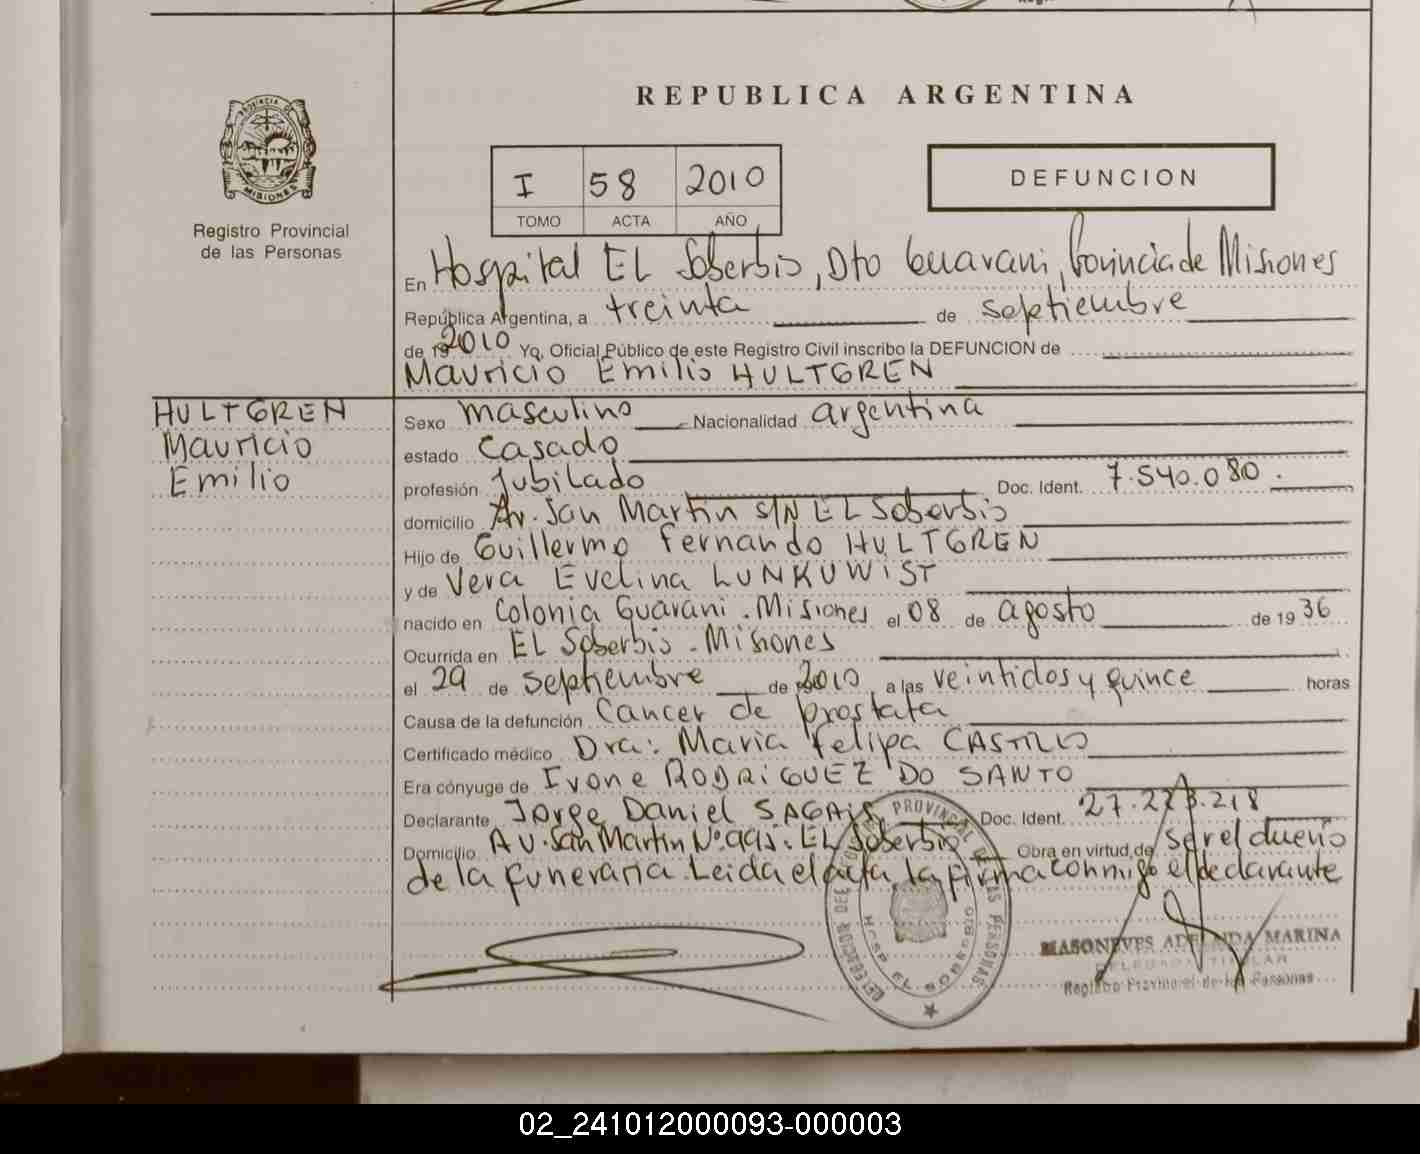 REPUBLICA ARGENTINA
PROVINCIA DE
MISIONES
Registro Provincial
de las Personas
I 58 2010
TOMO ACTA AÑO
DEFUNCION
En Hospital EL Soberbio, Dto Guarani, Provincia de Misiones
República Argentina, a treinta de septiembre
de 19 2010 Yo, Oficial Público de este Registro Civil inscribo la DEFUNCION de
Mauricio Emilio HULTGREN
HULTGREN
Mauricio
Emilio
Sexo masculino Nacionalidad argentina
estado Casado
profesión Jubilado Doc. Ident. 7.540.080.
domicilio Av. San Martin S/N EL Soberbio
Hijo de Guillermo Fernando HULTGREN
y de Vera Evelina LUNKUWIST
nacido en Colonia Guarani - Misiones el 08 de agosto de 19 36
Ocurrida en EL Soberbio - Misiones
el 29 de septiembre de 2010 a las veintidos y quince horas
Causa de la defunción Cancer de prostata
Certificado médico Dra: Maria Felipa CASTILLO
Era cónyuge de Ivone RODRiGUEZ DO SANTO
Declarante Jorge Daniel SAGAIS Doc. Ident. 27.223.218
Domicilio AV. San Martin Nº 991. EL Soberbio Obra en virtud de ser el dueño
de la funeraria. Leida el acta, la firma conmigo el declarante
PROVINCIAL DE LAS PERSONAS
HOSP. EL SOBERBIO
MASONEVES ADELINDA MARINA
DELEGADA TITULAR
Registro Provincial de las Personas
02_241012000093-000003